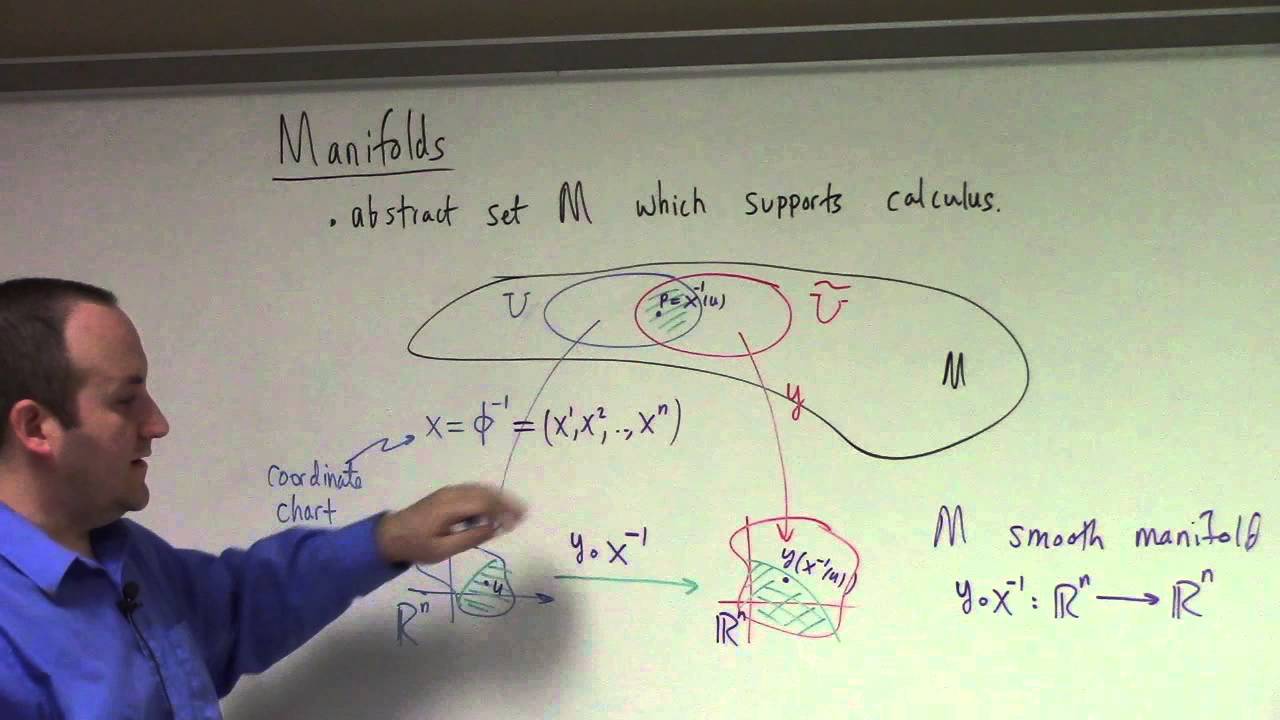 Manifolds
• abstract set M which supports calculus.
U
p = x⁻¹(u)
Ũ
M
y
x = ϕ⁻¹ = (x¹, x², .., xⁿ)
coordinate
chart
y∘x⁻¹
u
y(x⁻¹(u))
ℝⁿ
ℝⁿ
M smooth manifold
y∘x⁻¹ : ℝⁿ → ℝⁿ